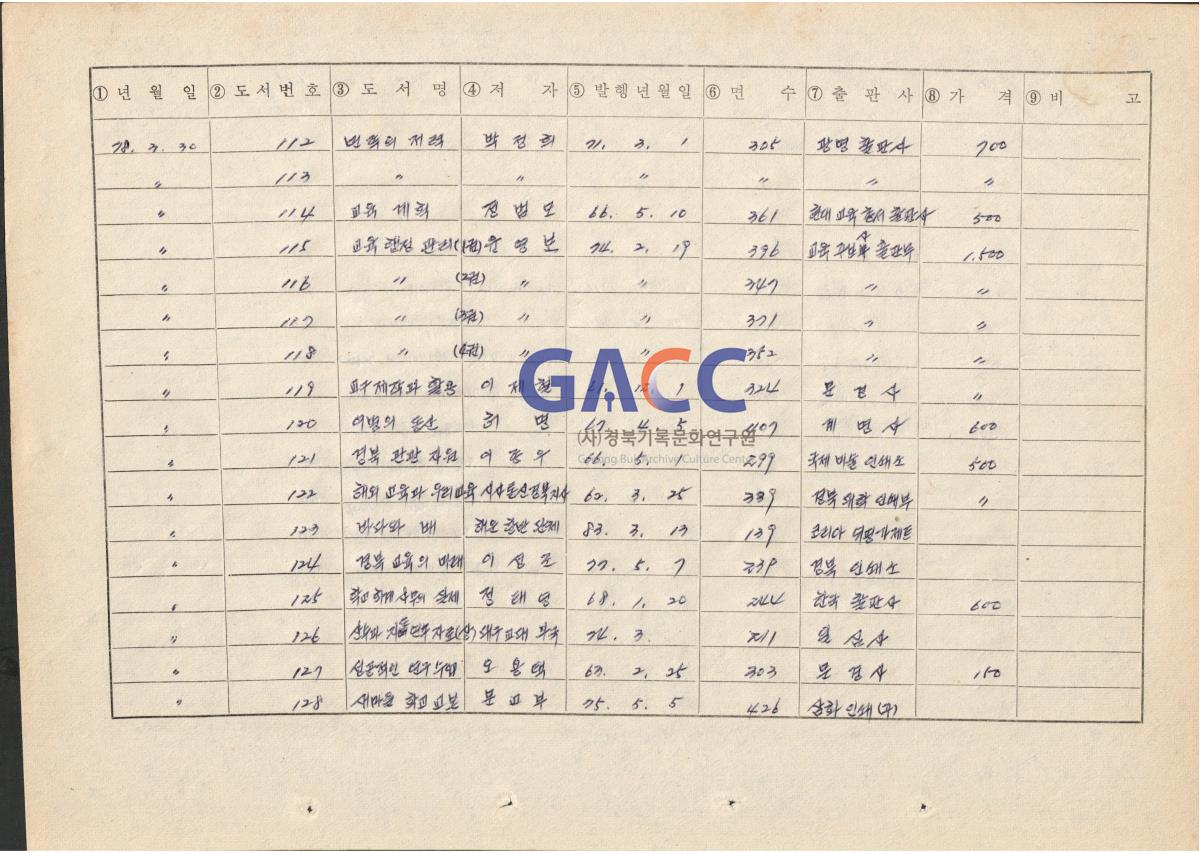 ①년 월 일 ②도서번호 ③도 서 명 ④저 자 ⑤발행년월일 ⑥면 수 ⑦출 판 사 ⑧가 격 ⑨비 고
78. 3. 30 112 민족의 저력 박정희 71. 3. 1 305 광명 출판사 700
〃 113 〃 〃 〃 〃 〃 〃
〃 114 교육 계획 정범모 66. 5. 10 361 현대 교육 총서 출판사 500
〃 115 교육 행정 관리(1권) 윤영보 74. 2. 19 396 교육 출판부 1,500
〃 116 〃 (2권) 〃 〃 347 〃 〃
〃 117 〃 (3권) 〃 〃 371 〃 〃
〃 118 〃 (4권) 〃 〃 352 〃 〃
〃 119 교구제작과 활용 이제철 1 324 문경사 〃
〃 120 여명의 동산 허 67. 4. 5 407 계명사 600
〃 121 경북 관광 자원 이 66. 5. 1 299 국제 인쇄소 500
〃 122 해외 교육과 우리교육 62. 3. 25 339 경북 대학 인쇄부 〃
〃 123 바다와 배 해운 항만 단체 83. 3. 13 139 코리아
〃 124 경북 교육의 미래 이성조 77. 5. 7 239 경북 인쇄소
〃 125 학교 회계 사무의 실제 정태영 68. 1. 20 244 한국 출판사 600
〃 126 산수과 자료(상) 대구교대 부국 74. 3. 211 일심사
〃 127 성공적인 연구수업 오용택 63. 2. 25 303 문경사 150
〃 128 새마을 학교교본 문교부 75. 5. 5 426 삼화 인쇄(주)
GACC
(사)경북기록문화연구원
Gyeong Buk Archive Culture Center